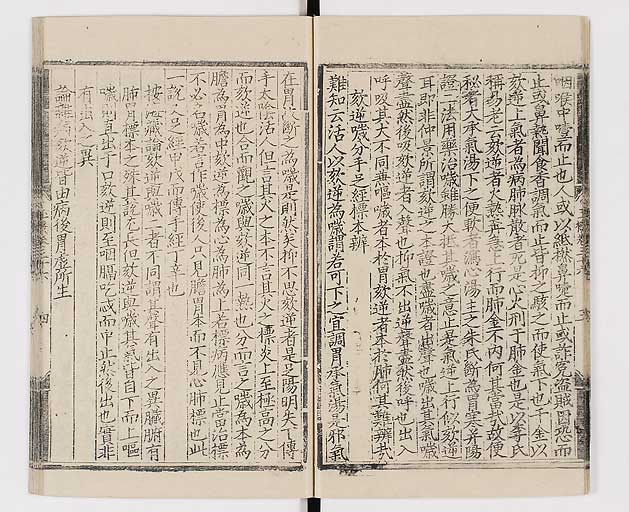 咽喉中噎而止也人或以紙撚鼻嚏而止或詐冤盜賊因恐而
止或鼻熱聞食香調氣而止皆抑之駭之而使氣下也千金以
欬逆上氣者為病肺脉散者死是心火刑于肺金也是以李氏
稱易老云欬逆者火熱奔急上行而肺金不內何其當哉故便
秘者大承氣湯下之便軟者瀉心湯主之朱氏斷為胃寒
證二法用藥治噦雖勝大抵其噦之意止是氣逆上行似欬逆
耳即非仲景所謂欬逆之本證也盡噦者出聲也噦出其氣噦
聲盡然後吸欬逆者入聲也抑氣不出逆聲盡然後呼也出入
呼吸其大不同嘔噦者本於胃欬逆者本於肺何其難辨哉
欬逆噦分手足經標本辨
難知云活人以欬逆為噦謂若可下之宜調胃承氣湯是邪氣
在胃火斷之為噦是則然矣抑不思欬逆者是足陽明失下傳
手太陰活人但言其火之本不言其火之標炎上至極高之分
而欬逆也合而觀之噦與欬逆同一熱也分而言之噦為本為
膽為胃為中欬逆為心為肺為上若標病應見止當治標
不必名噦若言作噦使後人只見膽胃本而不見心肺標也此
一說火之經甲戊而傳手經丁辛也
按海藏論欬逆與噦二者不同謂其聲有出入之異臟腑有
肺胃標本之殊其說允長但欬逆與噦其氣皆自下而上嘔
噦則直出于口欬逆則至咽膈吃忒而中止然後出也實非
有出入之異
論雜病欬逆皆出病後胃虛所生